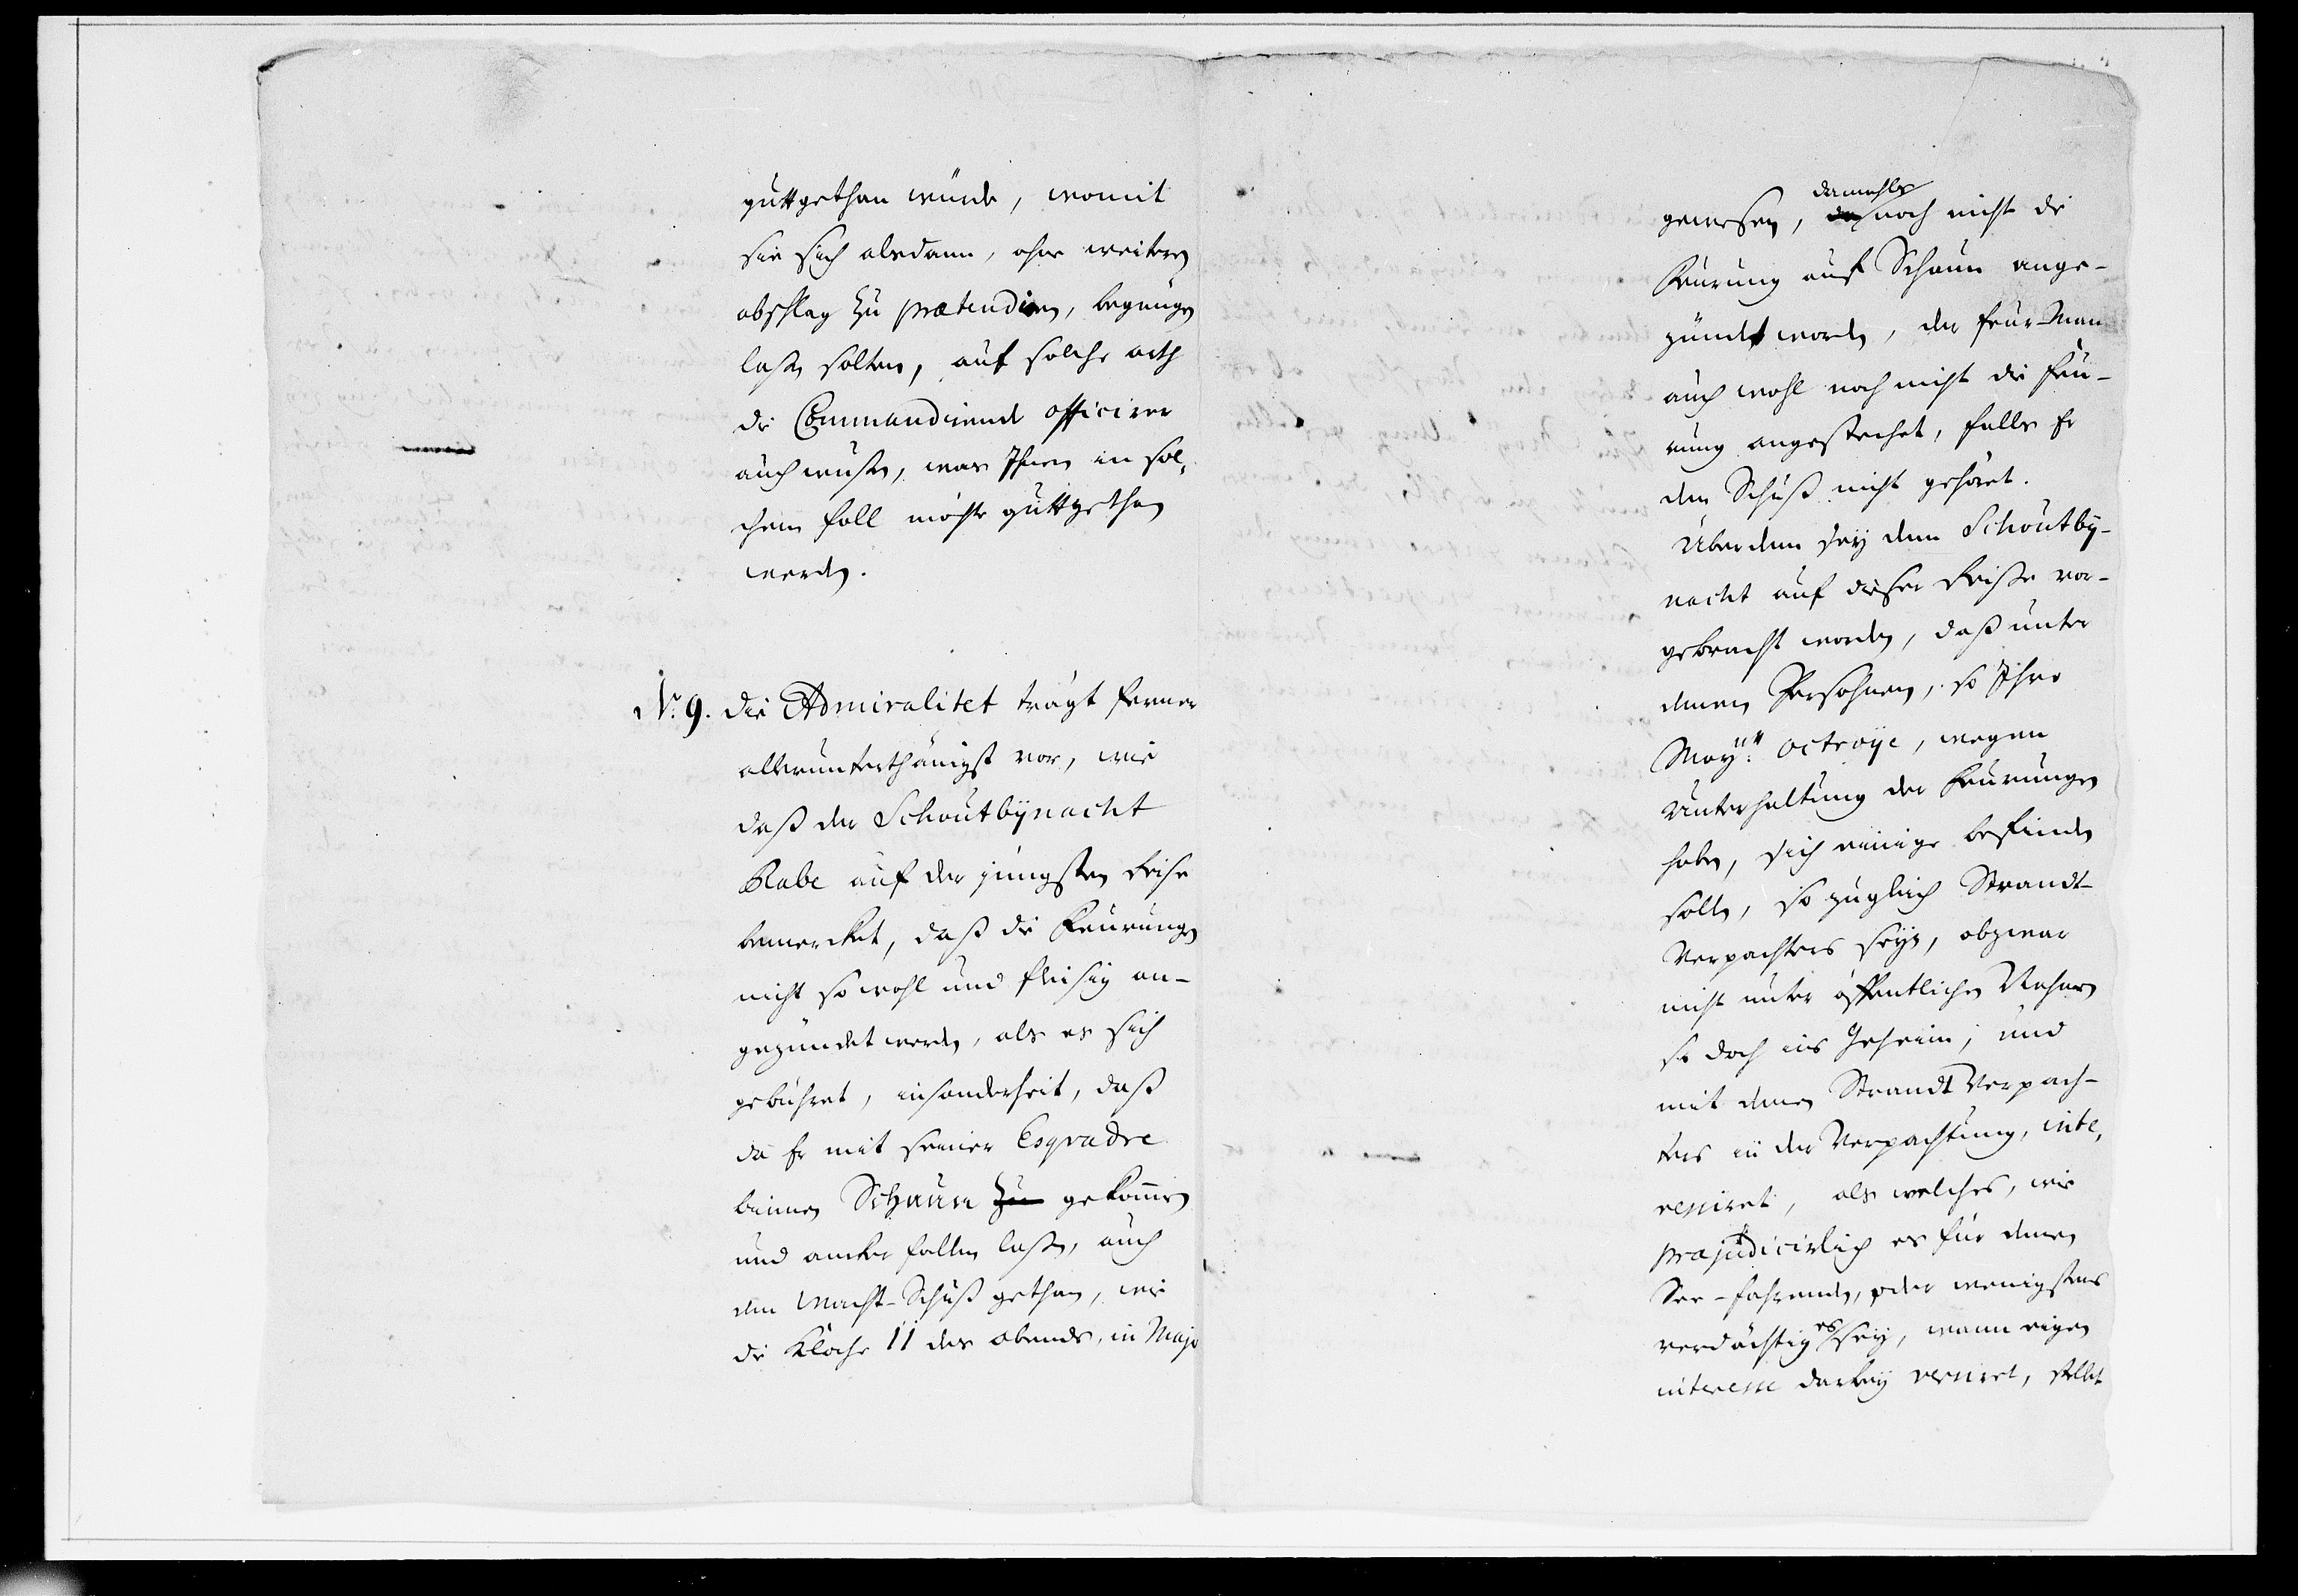 guttgethan würde, womit
sie sich alsdann, ohne weitern
abschlag zu prætendiren, begnügen
laßen solten, auf solche arth
die Commandirende officirer
auch wusten, was Ihnen in sol,
chem fall möchte guttgethan
werden.
No. 9. Die Admiralitet trägt ferner
allerunterthänigst vor, wie
daß der Schoutbynacht
Rabe auf der jüngsten Reise
bemercket, daß die Feurungen
nicht so wohl und fleisig an-
gezündet werden, als es sich
gebühret, insonderheit, daß
da Er mit seiner Esqvadre
binnen Schauen zu gekommen
und ancker fallen laßen, auch
den Wacht-Schuß gethan, wie
die Klocke 11 des abends, in Majo
gewesen, damahls noch nicht die
Feurung auf Schaun ange-
zündet worden, der Feur-Man
auch wohl noch nicht die Feu-
rung angestechet, falls Er
den Schuß nicht gehöret.
Uberdem sey dem Schoutby-
nacht auf dieser Reise vor-
gebracht worden, daß unter
denen Persohnen, so Ihro
Maytt. octroye, wegen
Unterhaltung der Feurungen
haben, sich einige befinden
sollen, so zugleich Strandt-
Verpachters seyn, obzwar
nicht unter öffentlichen Nahmen
so doch ins Geheim, und
mit denen Strandt Verpach-
ters in der Verpachtung, inte,
ressiret, als welches, wie
præjudicirlich es für denen
See-fahrenden, oder wenigstens
verdächtig es sey, wann eigen
interesse darbey versiret, selbst